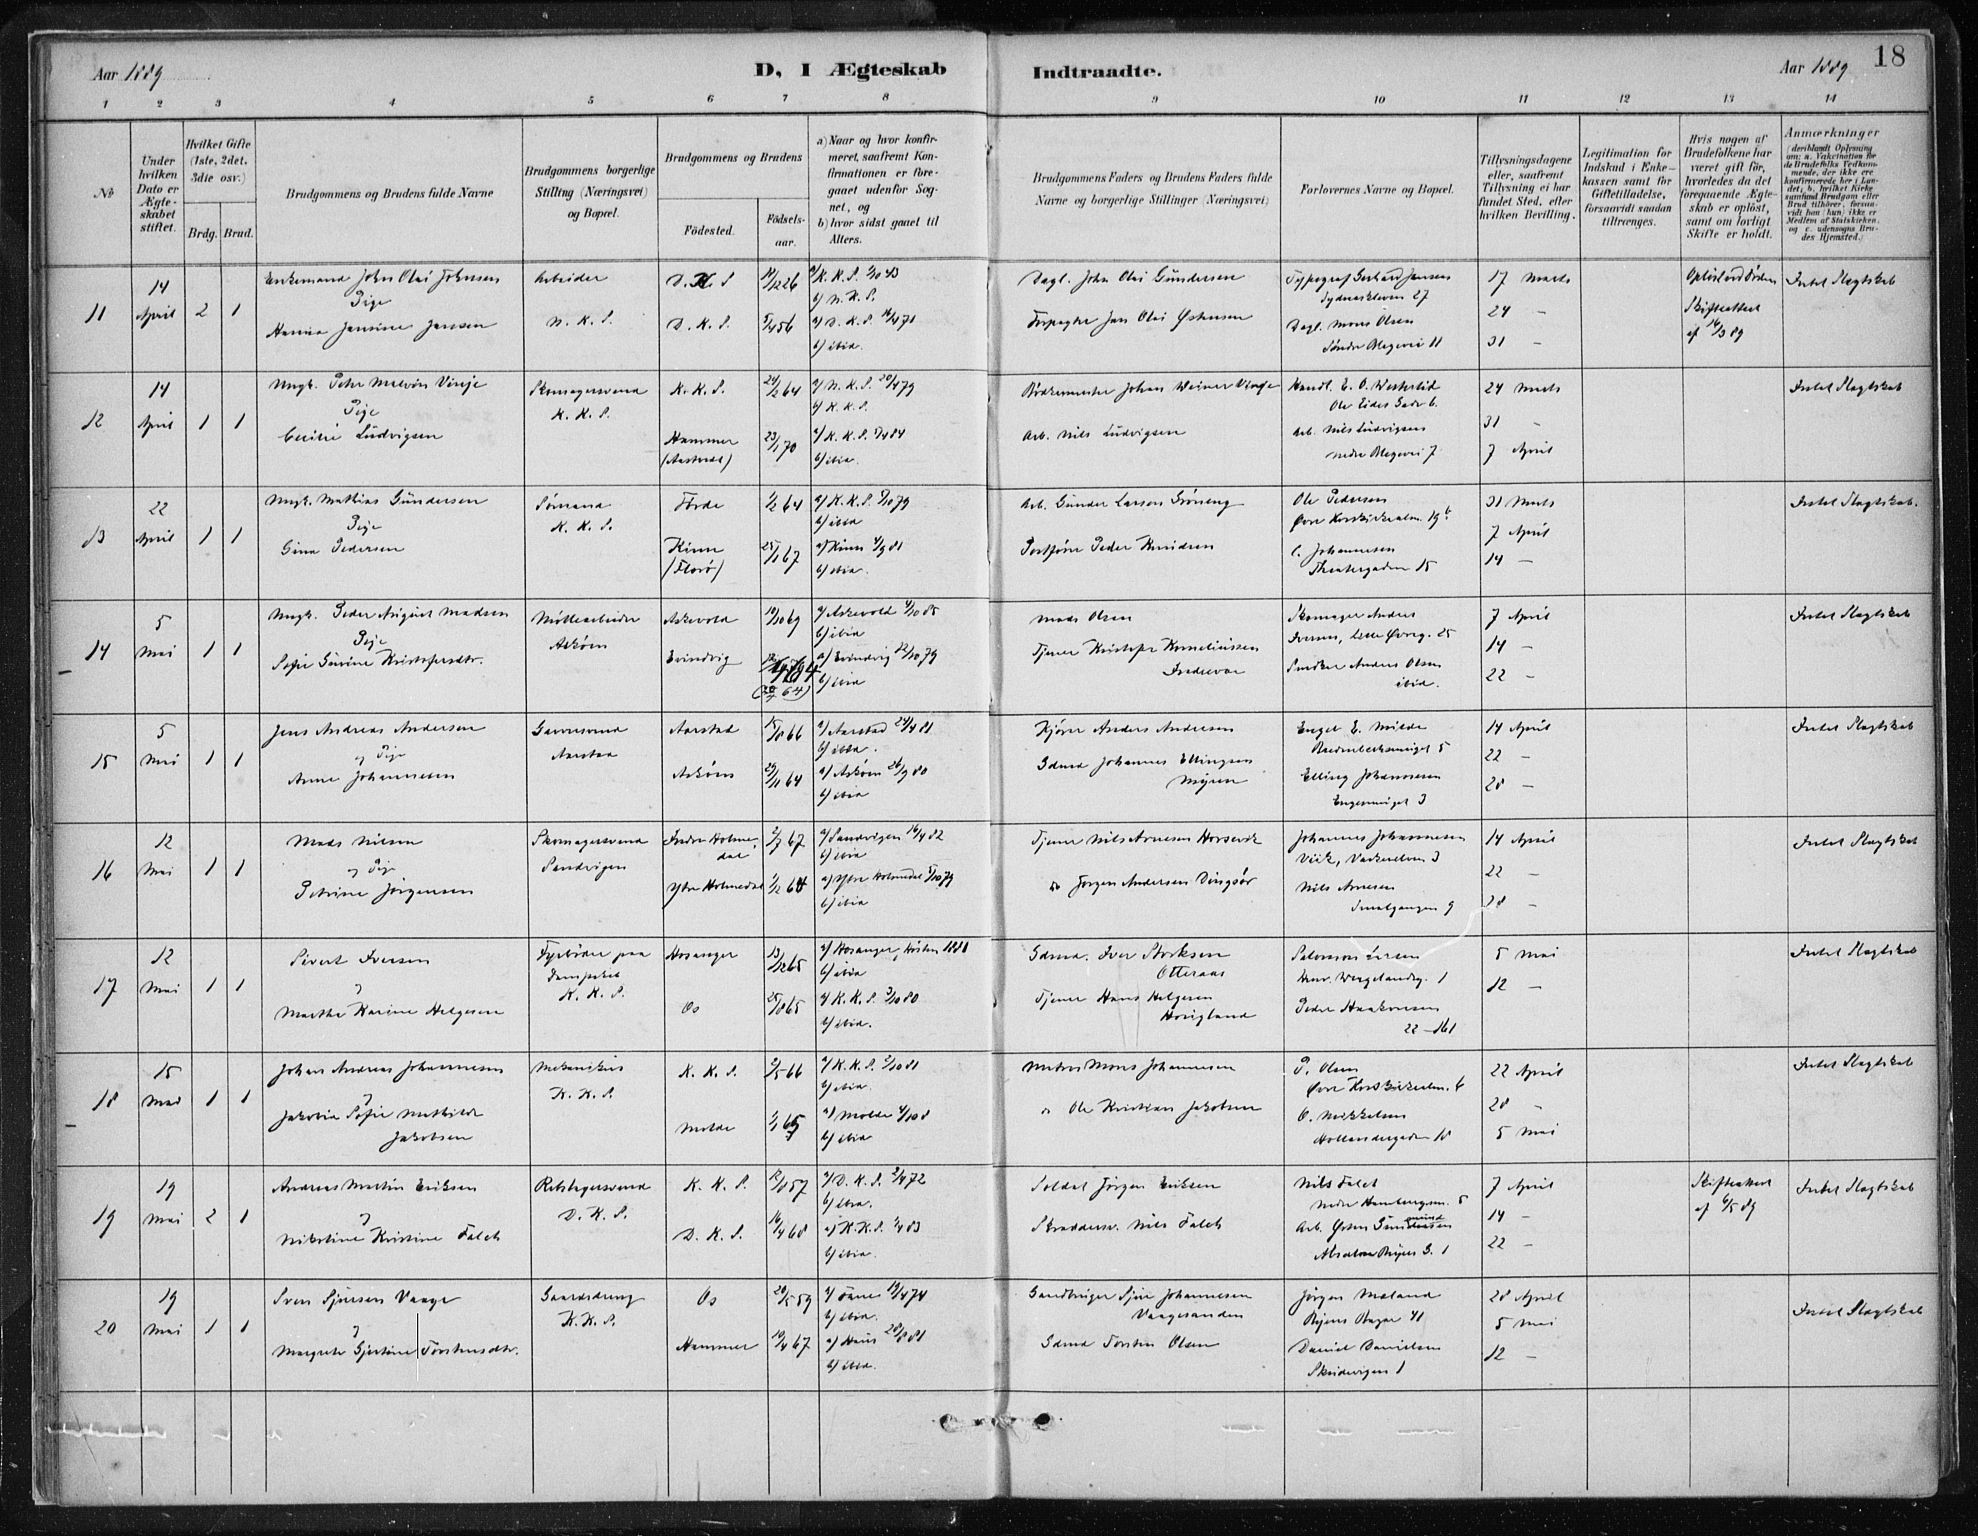 Aar 1889
D, I Ægteskab
Indtraadte.
Aar 1889
18
1 2 3 4 5 6 7 8 9 10 11 12 13 14
No
Under hvilken Dato er Ægteskabet stiftet.
Hvilket Gifte (1ste, 2det, 3die osv.)
Brdg. Brud.
Brudgommens og Brudens fulde Navne
Brudgommens borgerlige Stilling (Næringsvei) og Bopæl.
Brudgommens og Brudens
Fødested.
Fødselsaar.
a) Naar og hvor konfirmeret, saafremt Konfirmationen er foregaaet udenfor Sognet, og
b) hvor sidst gaaet til Alters.
Brudgommens Faders og Brudens Faders fulde Navne og borgerlige Stillinger (Næringsvei)
Forlovernes Navne og Bopæl.
Tillysningsdagene eller, saafremt Tillysning ei har fundet Sted, efter hvilken Bevilling.
Legitimation for Indskud i Enkekassen samt for Giftetilladelse, forsaavidt saadan tiltrænges.
Hvis nogen af Brudefolkene har været gift før, hvorledes da det foregaaende Ægteskab er opløst, samt om lovligt Skifte er holdt.
Anmærkninger (deriblandt Oplysning om: a. Vakcination for de Brudefolks Vedkommende, der ikke ere konfirmerede her i Landet; b. hvilket Kirkesamfund Brudgom eller Brud tilhører, forsaavidt han (hun) ikke er Medlem af Statskirken, og c. udensogns Brudes Hjemsted.)
11
14 April
2 1
Enkemand John Olai Johnsen
Pige
Hanna Jansine Jansen
Arbeider
N. K. S.
D. K. S.
D. K. S. 5/4 56
b) N. K. S.
a) D. K. S. 16/4 71
b) ibid.
Dagl. John Olai Gundersen
Jan Olai Østensen
Typograf Gerhard Jansen
27
Dagl. Mons Olsen
Søndre Blegevei 11
17 Marts
24 -
31 -
Skifteattest af 16/3 89
Intet Slægtskab
12
14 April
1 1
Ungk. Peter Vinje
Pige
Cecilie Ludvigsen
Skomagersvend
K. K. S.
K. K. S. 24/2 64
Hammer 23/1 70
a) N. K. S. 20/4 79
b) K. K. S.
b) ibid.
Bødkermester Johan Weiner Vinje
Arb. Nils Ludvigsen
Handl. E. O.
Ole Eides Gade 6.
Arb. Nils Ludvigsen
nedre Blegevei 7
24 Marts
31 -
7 April
Intet Slægtskab
13
22 April
1 1
Ungk. Mathias Gundersen
Pige
Gina Pedersen
Sømand
K. K. S.
Førde
Kinn
(Florø)
25/1 67
b) ibid
b) ibid
Arb. Gunder Larsen
Peder Knudsen
Ole Pedersen
Øvre Korskirkealm. 19 b
C. Johannesen
Theatergaden 15
31 Marts
7 April
14 -
Intet Slægtskab.
14
5 Mai
1 1
Ungk. Peder August Madsen
Pige
Sofie Gurine Kristofersdtr.
Møllearbeider
Askøen
Askevold 19/10 69
Evindvig
b) ibid
a) Evindvig 12/10 79
b) ibid
Mads Olsen
Tjener Kristofer Korneliussen
Skomager Anders
Iversen, Lille Øvreg. 25
Snedker Anders Olsen
ibid.
7 April
14 -
22 -
Intet Slægtskab
15
5 Mai
1 1
Jens Andreas Andersen
og Pige
Anne Johannesen
Garversvend
Aarstad
Aarstad 15/8 66
Askøen 29/11 64
a) Aarstad 24/4 81
b) ibid.
a) Askøen 26/9 80
b) ibid
Anders Andresen
Gdmd Johannes Ellingsen
Myren
Engel E. Milde
5
Elling Johannesen
Engensmuget 3
14 April
22 -
28 -
Intet Slægtskab
16
12 Mai
1 1
Mads Nilsen
og Pige
Petrine Jørgensen
Skomagersvend
Sandvigen
Indre Holmedal 2/7 67
Ytre Holmedal 1/2 64
a) Sandvigen 16/4 82
b) ibid
b) ibid
Tjener Nils Arnesen Horsevik
do Jørgen Andersen Dingsør
Johannes Johannesen
Nils Arnesen
Smalgangen 9
14 April
22 -
28 -
Intet Slægtskab
17
12 Mai
1 1
Sivert Iversen
og
Marthe Karine Helgesen
Fyrbøder paa
Dampskib
K. K. S.
Hosanger 13/12 65
Os 25/8 65
a) Hosanger, Høsten 1880
b) ibid
a) K. K. S. 3/10 80
b) ibid.
Gdmd. Iver
Otteraas
Tjener Hans Helgesen
Haugland
Salomon Larsen
Henr. Wergelandsg. 1
Peder Haakonsen
5 Mai
12 -
Intet Slægtskab
18
15 Mai
1 1
Johan Andreas Johannesen
og
Jakobia Sofie Mathilde
Jakobsen
Mekanikus
K. K. S.
K. K. S. 2/5 66
Molde
a) K. K. S. 2/10 81
b) ibid.
b) ibid
Matros Mons Johannesen
" Ole Kristian Jakobsen
P. Olsen
Øvre Korskirkealm. 6
O. Mikkelsen
Hollændergaden 18
22 April
28 -
5 Mai
Intet Slægtskab
19
19 Mai
2 1
Andreas Martin Eriksen
og
Nikoline Kristine Falch
Rebslagersvend
D. K. S.
K. K. S.
D. K. S. 16/4 68
a) D. K. S. 2/4 72
b) ibid.
a) K. K. S. 1/4 83
b) ibid.
Soldat Jørgen Eriksen
Skræddersv. Nils Falch
Nils Falch
5
Arb. Østen
Absalon Beyers G. 1
7 April
14 -
22 -
Skifteattest af 6/5 89
Intet Slægtskab
20
19 Mai
1 1
Sven Sjursen Vaage
og
Margrete Gjertine Torstensdtr.
Gaardsdreng
K. K. S.
Os 20/5 59
Hammer 19/4 67
a) Fane 19/4 74
b) ibid.
a) Haus 28/8 81
b) ibid.
Sjur Johannesen
Vaagesanden
Gdmd Torsten Olsen
Jørgen Mæland
Beyens Bazar 41
Daniel Danielsen
Skudevigen 1
28 April
5 Mai
12 -
Intet Slægtskab